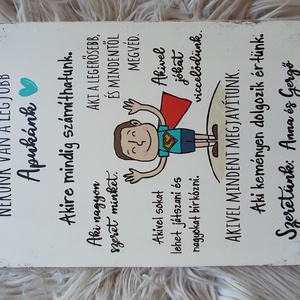 NEKÜNK VAN A LEGJOBB
Apukánk
Akire mindig számíthatunk.
Aki nagyon
szeret minket.
AKI A LEGERŐSEBB,
ÉS MINDENTŐL
MEGVÉD.
Akivel sokat
lehet játszani és
nagyokat birkózni.
Akivel
jókat
viccelődünk.
AKIVEL MINDENT MEGJAVÍTUNK.
Aki keményen dolgozik értünk.
Szeretünk: Anna és Gergő